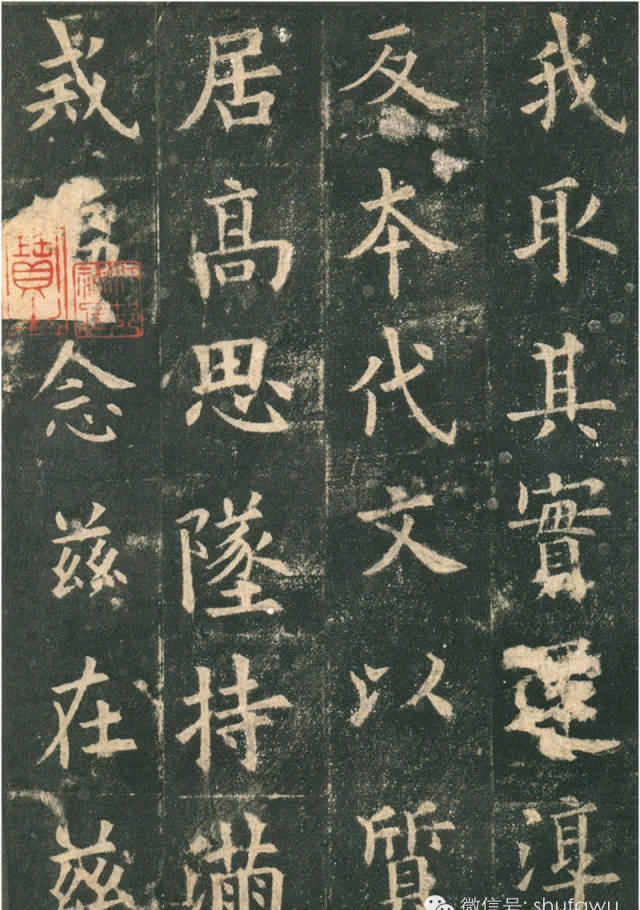 我取其實還淳
反本代文以質
居髙思墜持滿
戒念兹在兹
微信号: shufawu